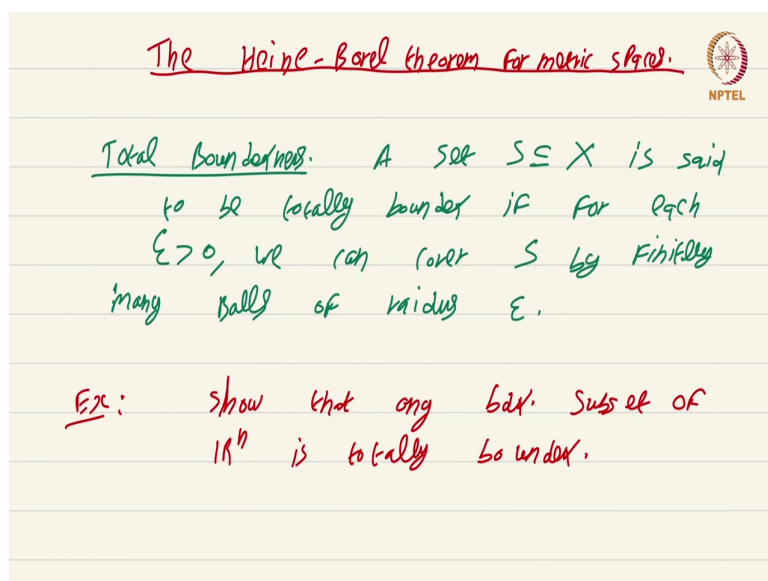 The Heine-Borel theorem for metric spaces.
NPTEL
Total Boundedness. A set S ⊆ X is said
to be totally bounded if for each
ε>0, we can cover S by finitely
many Balls of raidus ε.
Ex: show that any bdd. subset of
ℝⁿ is totally bounded.